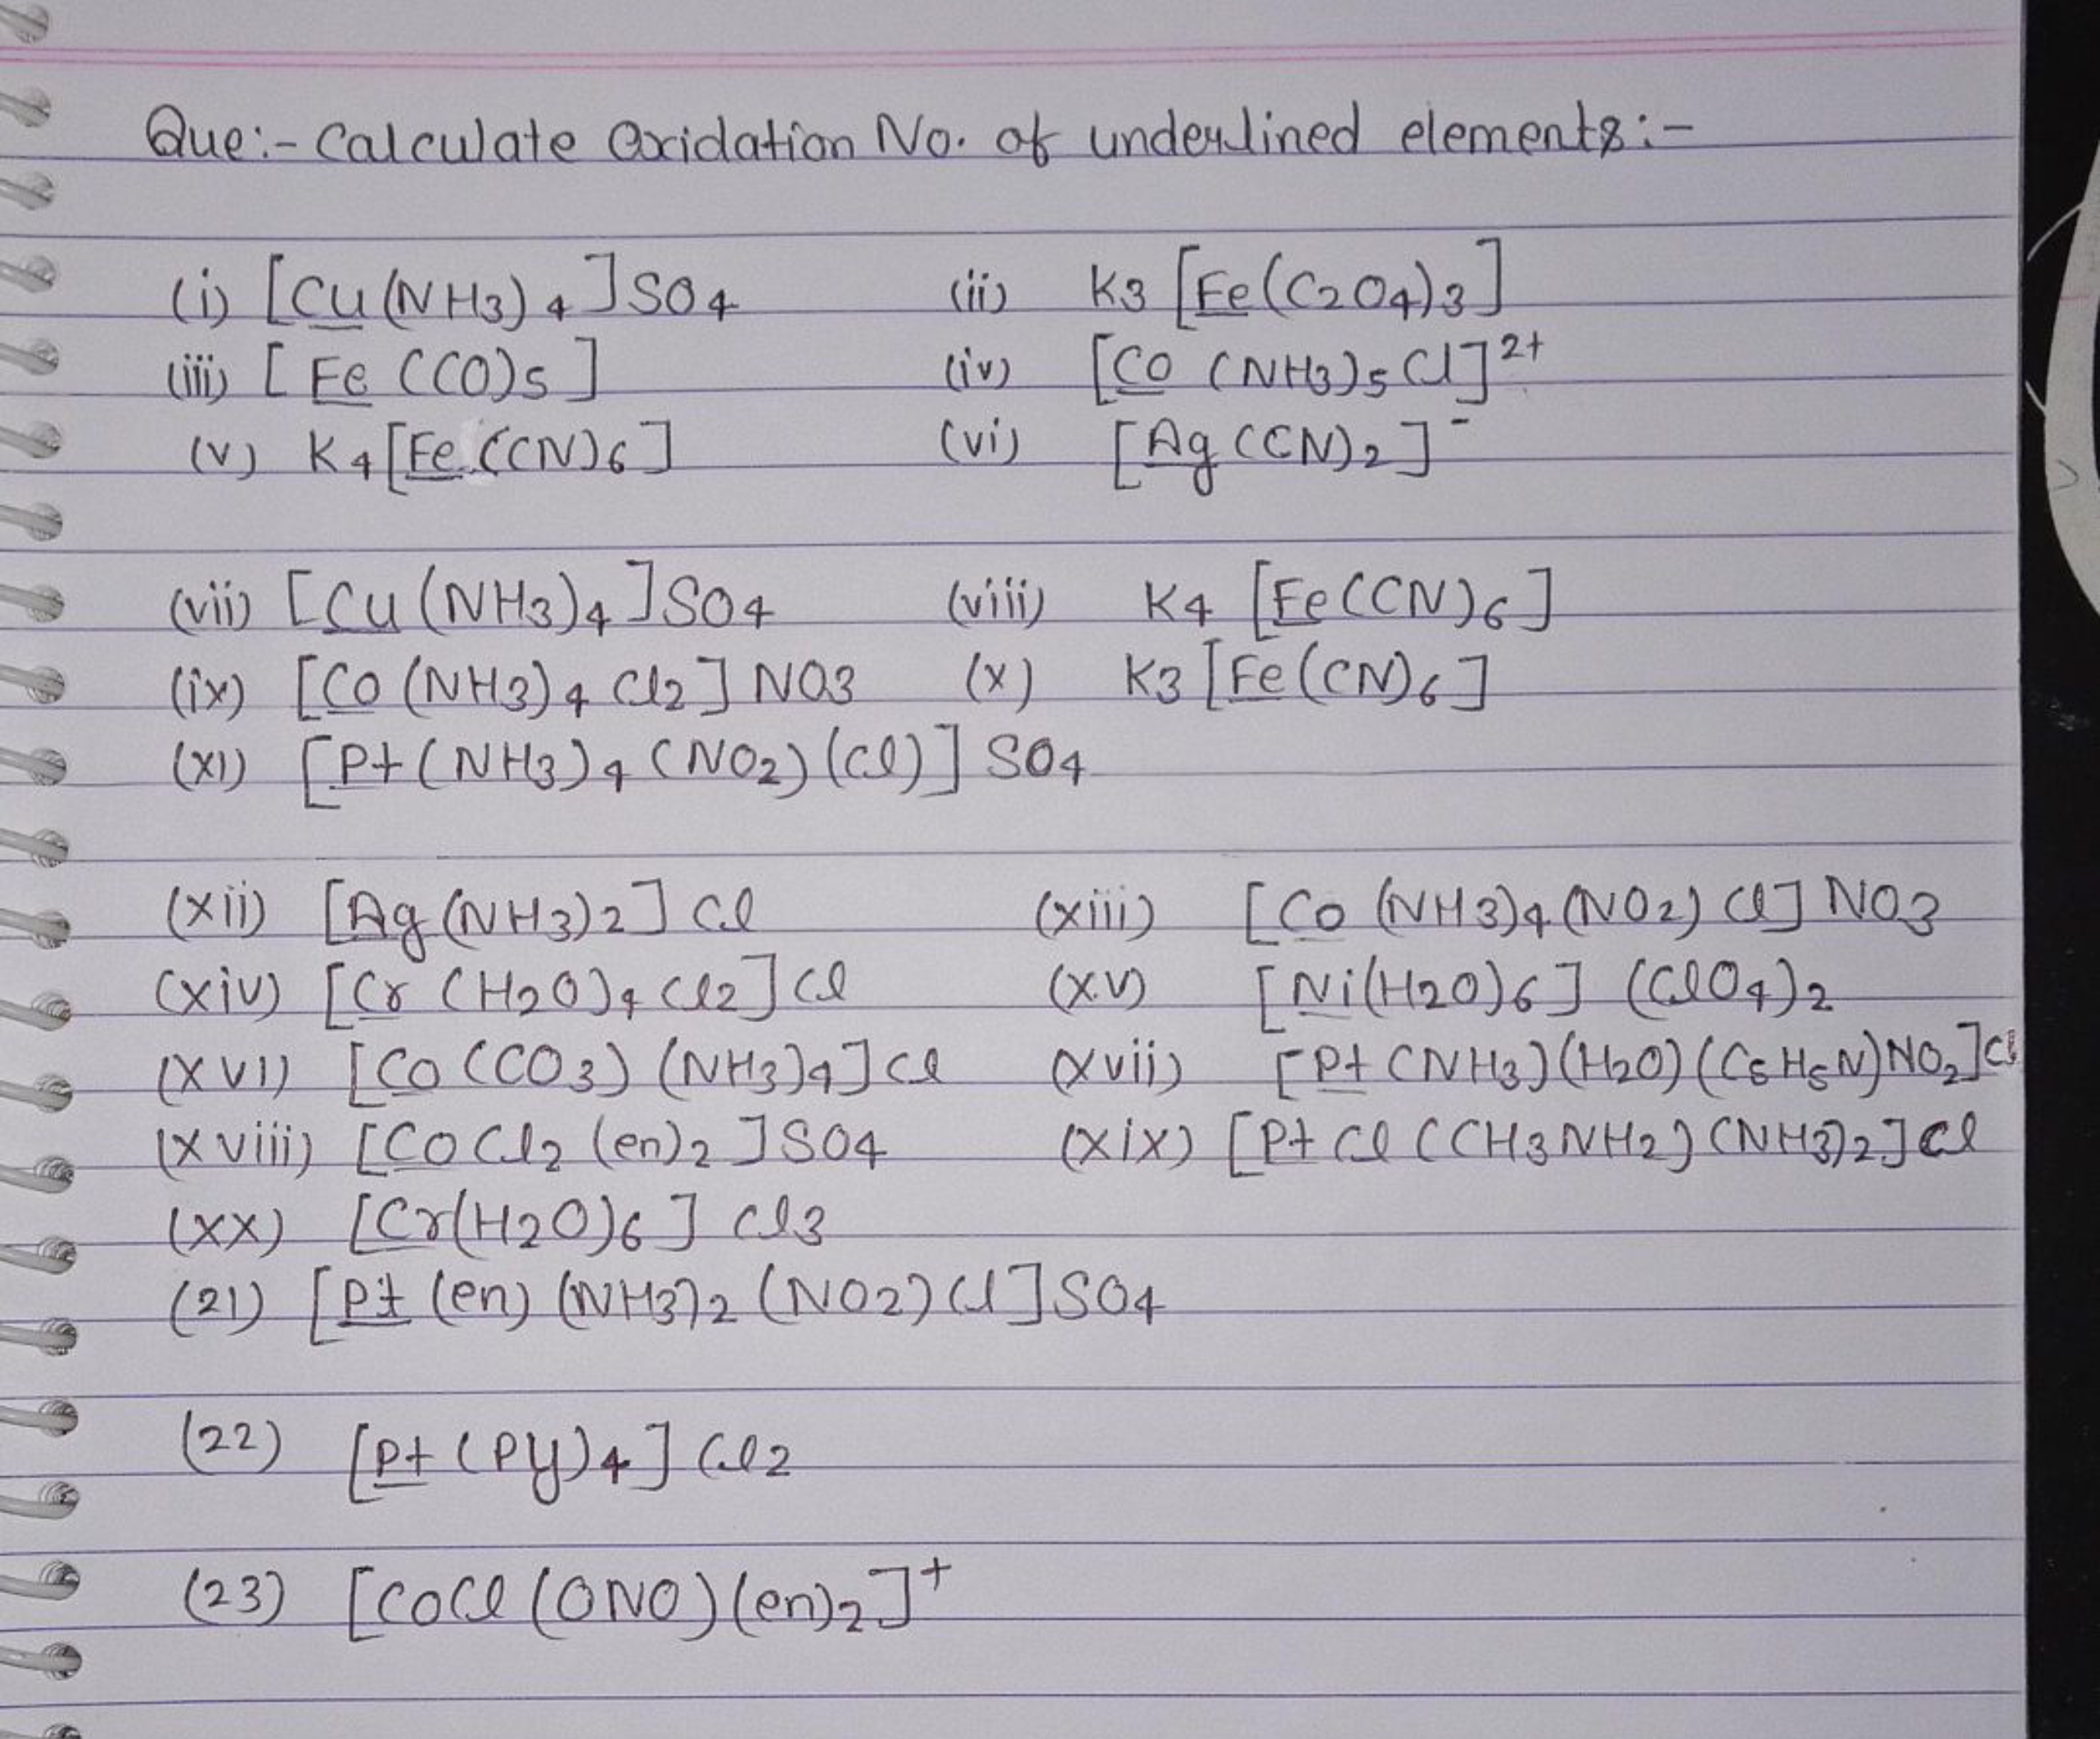 Que:- Calculate Oxidation No. of underlined elements:-
(i) [Cu(NH3)4]SO4 (ii) K3[Fe(C2O4)3]
(iii) [Fe(CO)5] (iv) [Co(NH3)5Cl]2+
(v) K4[Fe(CN)6] (vi) [Ag(CN)2]-
(vii) [Cu(NH3)4]SO4 (viii) K4[Fe(CN)6]
(ix) [Co(NH3)4Cl2]NO3 (x) K3[Fe(CN)6]
(xi) [Pt(NH3)4(NO2)(Cl)]SO4
(xii) [Ag(NH3)2]Cl (xiii) [Co(NH3)4(NO2)Cl]NO3
(xiv) [Cr(H2O)4Cl2]Cl (xv) [Ni(H2O)6](ClO4)2
(xvi) [Co(CO3)(NH3)4]Cl (xvii) [Pt(NH3)(H2O)(C5H5N)NO2]Cl
(xviii) [CoCl2(en)2]SO4 (xix) [PtCl(CH3NH2)(NH3)2]Cl
(xx) [Cr(H2O)6]Cl3
(21) [Pt(en)(NH3)2(NO2)Cl]SO4
(22) [Pt(Py)4]Cl2
(23) [CoCl(ONO)(en)2]+